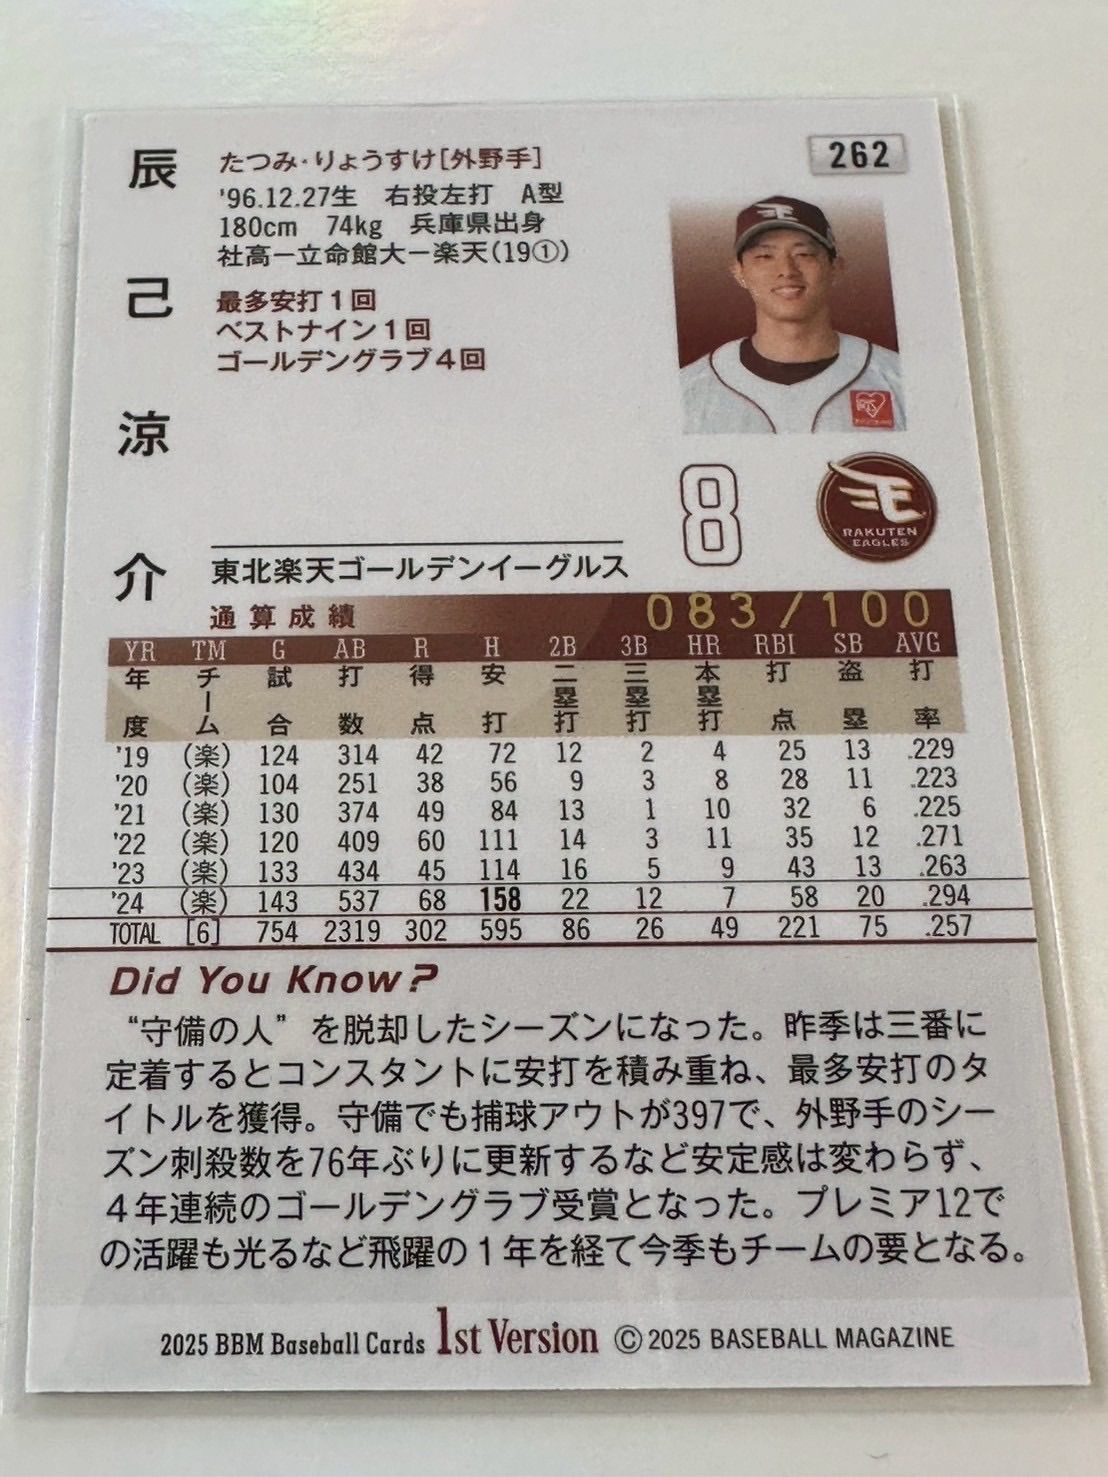 辰己涼介
たつみ・りょうすけ[外野手]
'96.12.27生 右投左打 A型
180cm 74kg 兵庫県出身
社高ー立命館大ー楽天(19①)
最多安打1回
ベストナイン1回
ゴールデングラブ4回
262
8
RAKUTEN
EAGLES
東北楽天ゴールデンイーグルス
通算成績
083/100
YR TM G AB R H 2B 3B HR RBI SB AVG
年度 チーム 試合 打数 得点 安打 二塁打 三塁打 本塁打 打点 盗塁 打率
'19 (楽) 124 314 42 72 12 2 4 25 13 .229
'20 (楽) 104 251 38 56 9 3 8 28 11 .223
'21 (楽) 130 374 49 84 13 1 10 32 6 .225
'22 (楽) 120 409 60 111 14 3 11 35 12 .271
'23 (楽) 133 434 45 114 16 5 9 43 13 .263
'24 (楽) 143 537 68 158 22 12 7 58 20 .294
TOTAL [6] 754 2319 302 595 86 26 49 221 75 .257
Did You Know?
“守備の人”を脱却したシーズンになった。昨季は三番に
定着するとコンスタントに安打を積み重ね、最多安打のタ
イトルを獲得。守備でも捕球アウトが397で、外野手のシー
ズン刺殺数を76年ぶりに更新するなど安定感は変わらず、
4年連続のゴールデングラブ受賞となった。プレミア12で
の活躍も光るなど飛躍の1年を経て今季もチームの要となる。
2025 BBM Baseball Cards 1st Version ©2025 BASEBALL MAGAZINE